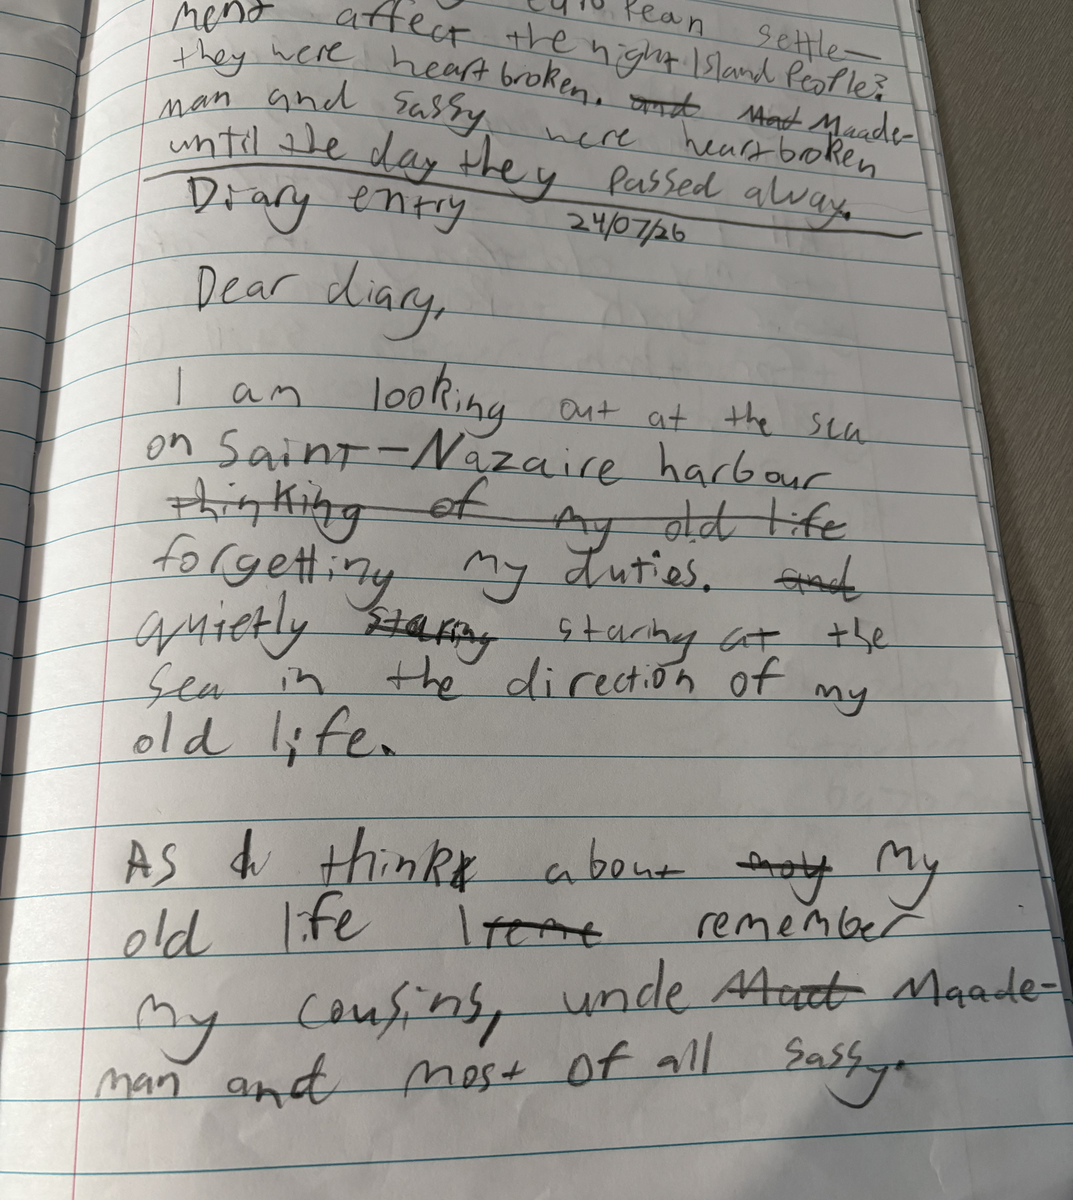 ment affect the night Island People?
settle-
they were heartbroken. and Mad Maade-
man and Sassy were heartbroken
until the day they passed alway.
Diary entry 24/07/26
Dear diary,
I am looking out at the sea
on Saint-Nazaire harbour
thinking of my old life
forgetting my duties. and
quietly staring staring at the
sea in the direction of my
old life.
As I think about my My
old life I reme remember
my cousins, uncle Maad Maade-
man and most of all Sassy.